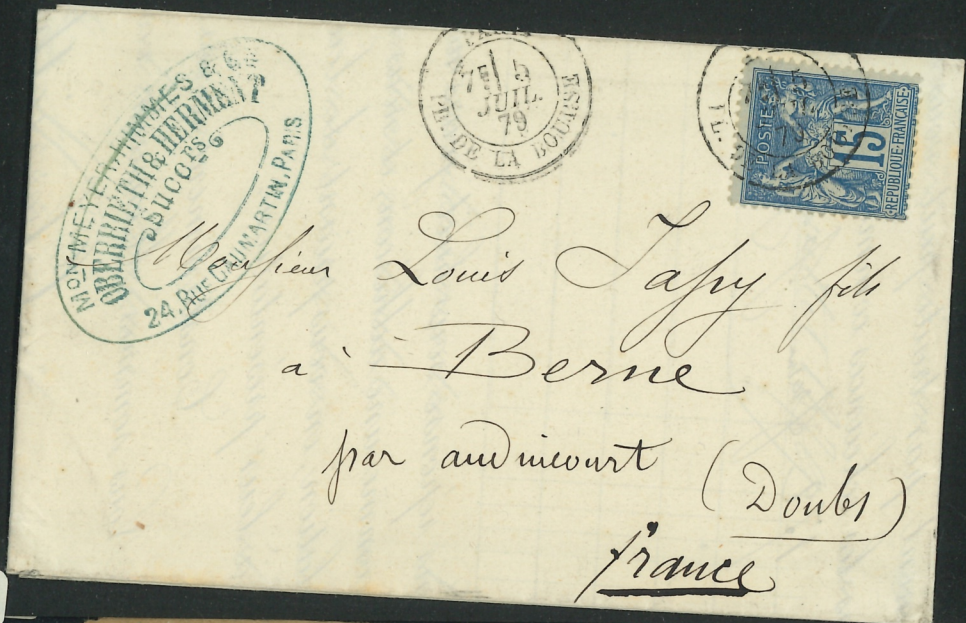 Mon MEYER, HIMMES & Cie
OBERRIETH & HERMENT
Succors
24, RUE CAUMARTIN, PARIS
PARIS
7E 5
JUIL.
79
PL. DE LA BOURSE
POSTE
15
REPUBLIQUE FRANCAISE
Monsieur Louis Japy fils
à Berne
par audincourt
(Doubs)
france